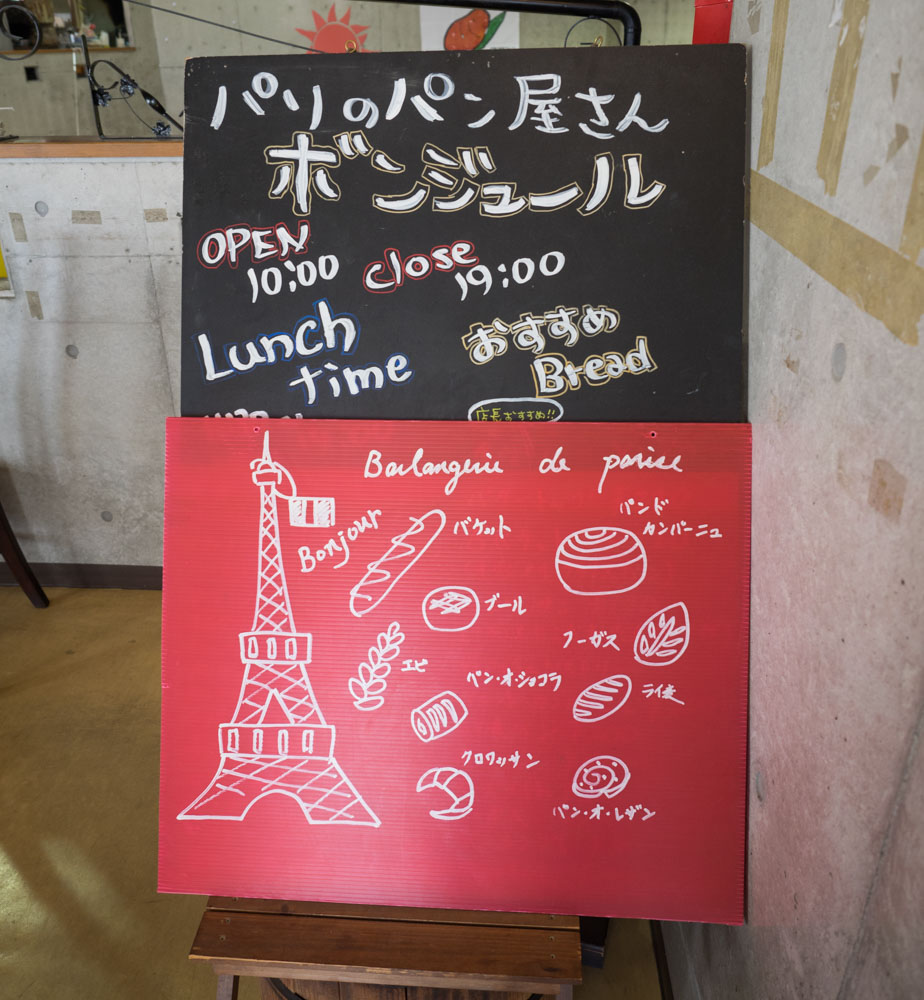 パリのパン屋さん
ボンジュール
OPEN
10:00
close
19:00
Lunch
time
おすすめ
Bread
店長おすすめ!!
Boulangerie de parise
Bonjour
バゲット
パンド
カンパーニュ
ブール
フーガス
エピ
ペン・オ・ショコラ
ライ麦
クロワッサン
パン・オ・レザン